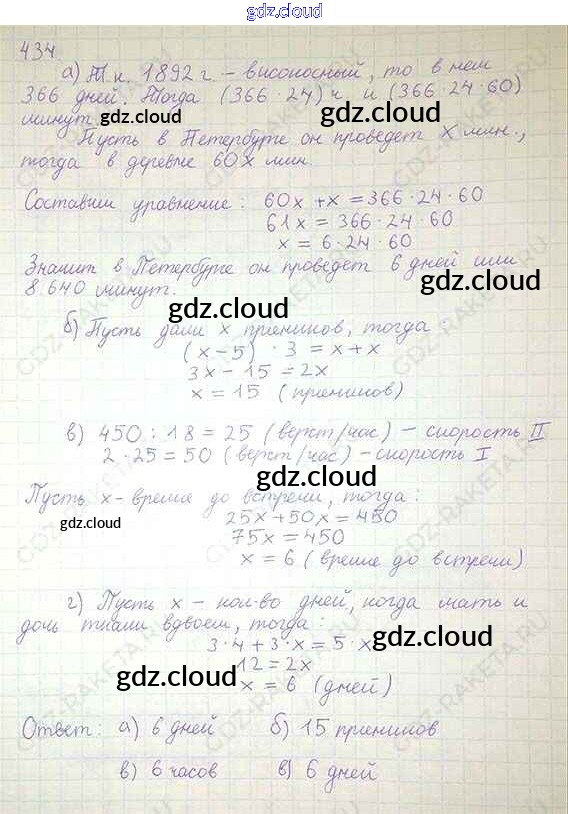 gdz.cloud
gdz.cloud
434
а) Т.к. 1892 г - високосный, то в нем
366 дней. Тогда (366·24)ч и (366·24·60)
минут.
gdz.cloud
gdz.cloud
Пусть в Петербурге он проведет x мин.,
тогда в деревне 60x мин.
Составим уравнение: 60x + x = 366·24·60
gdz.cloud
gdz.cloud
61x = 366·24·60
x = 6·24·60
Значит в Петербурге он проведет 6 дней или
8 640 минут.
gdz.cloud
gdz.cloud
б) Пусть дали x пряников, тогда:
(x-5) · 3 = x+x
3x - 15 = 2x
x = 15 (пряников)
gdz.cloud
в) 450 : 18 = 25 (верст/час) - скорость II
2·25 = 50 (верст/час) - скорость I
gdz.cloud
Пусть x - время до встречи, тогда:
25x+50x = 450
gdz.cloud
75x = 450
x = 6 (время до встречи)
г) Пусть x - кол-во дней, когда мать и
дочь ткали вдвоем, тогда:
3·4+3·x = 5·x
gdz.cloud
12 = 2x
gdz.cloud
x = 6 (дней)
Ответ: а) 6 дней б) 15 пряников
в) 6 часов в) 6 дней
gdz.cloud
gdz.cloud
GDZ-RAKETA.RU